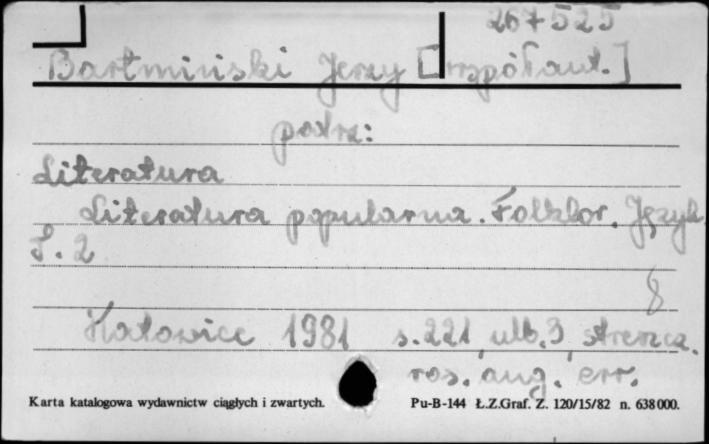 267525
Bartmiński Jerzy [współaut.]
patrz:
Literatura
Literatura popularna. Folklor. Język.
T. 2
8
Katowice 1981 s. 221, ulb. 3 streszcz.
ros. ang. err.
Karta katalogowa wydawnictw ciągłych i zwartych. Pu-B-144 Ł.Z.Graf. Z. 120/15/82 n. 638 000.